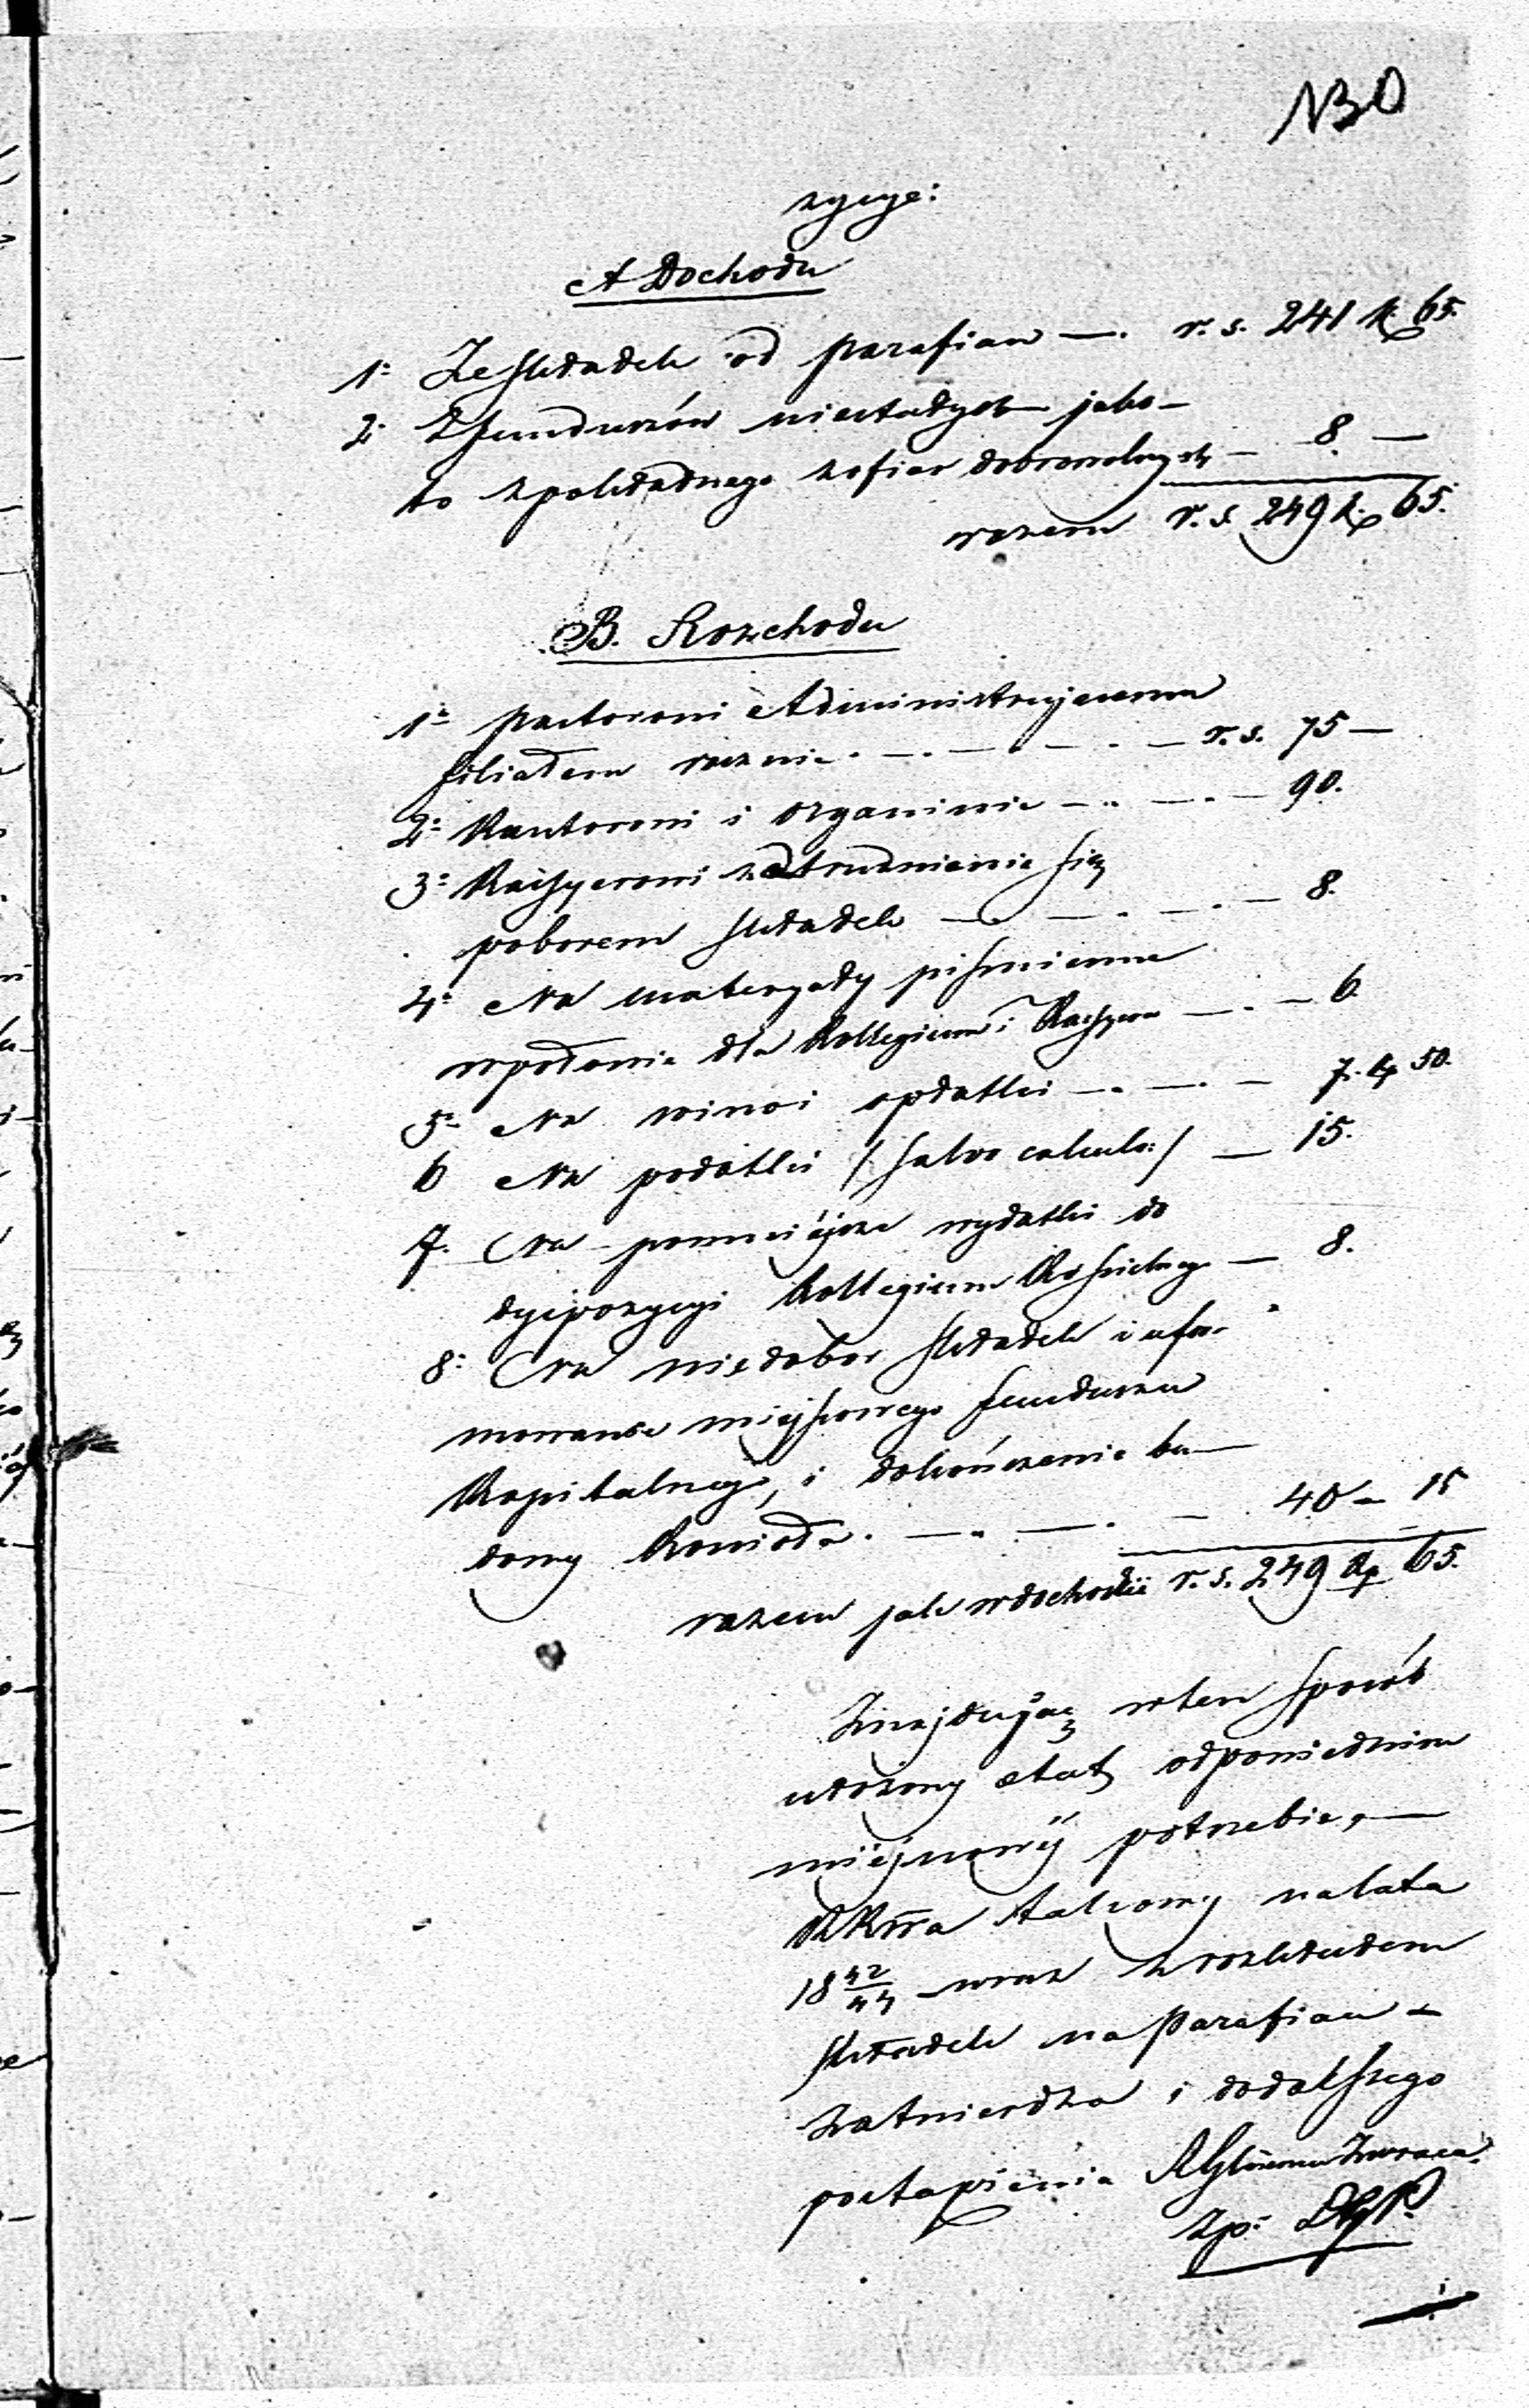 130
zycye:
A Dochodu
1º Ze składek od parafian — . r. s. 241 k. 65.
2º Z funduszów niestałych jako-
to z pokładnego z ofiar dobrowolnych — 8. —
razem r. s. 249 k. 65.
B. Rozchodu
1º Pastorowi Administrującemu
filiałem rocznie . — . — . — . — r. s. 75 —
2º Kantorowi i organiście — . — . — 90.
3º Kassyerowi za trudnienie się
poborem składek — . — . — . — 8.
4º Na materyały piśmienne
wpołowie dla Kollegium i Kassyera — . — 6.
5º Na wino i opłatki — . — . — 7. kp 50.
6 Na podatki /: salvo calculo :/ — 15.
7. Na pomniéjsze wydatki do
dyspozycyi Kollegium Kościelnego — 8.
8º Na niedobór składek i ufor-
mowanie miejscowego funduszu
Kapitalnego, i dokończenie bu-
dowy Kościoła . — . — . — 40 — 15
razem jak w dochodzie r. s. 249 kp 65.
Znajdując w ten sposób
ułożony etat odpowiednim
miéjscowéj potrzebie, —
takowy na lata
18 42/44 wraz z rozkładem
składek na Parafian —
zatwierdza i do dalszego
postąpienia zwraca.